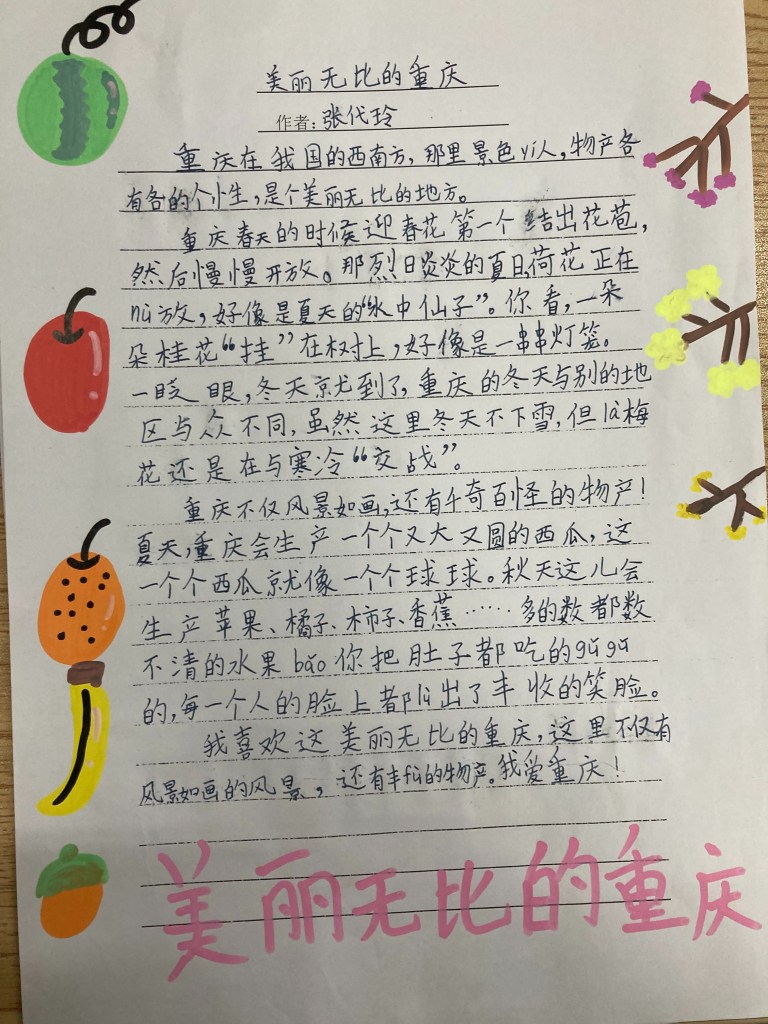 美丽无比的重庆
作者:张代玲
重庆在我国的西南方,那里景色yí人,物产各
有各的个性,是个美丽无比的地方。
重庆春天的时候迎春花第一个结出花苞,
然后慢慢开放。那烈日炎炎的夏日,荷花正在
nù放,好像是夏天的“水中仙子”。你看,一朵
朵桂花“挂”在树上,好像是一串串灯笼。
一眨眼,冬天就到了,重庆的冬天与别的地
区与众不同,虽然这里冬天不下雪,但là梅
花还是在与寒冷“交战”。
重庆不仅风景如画,还有千奇百怪的物产!
夏天,重庆会生产一个个又大又圆的西瓜,这
一个个西瓜就像一个个球球。秋天这儿会
生产苹果、橘子、柿子、香蕉……多的数都数
不清的水果bǎo你把肚子都吃的gǔgǔ
的,每一个人的脸上都lù出了丰收的笑脸。
我喜欢这美丽无比的重庆,这里不仅有
风景如画的风景,还有丰fù的物产。我爱重庆!
美丽无比的重庆